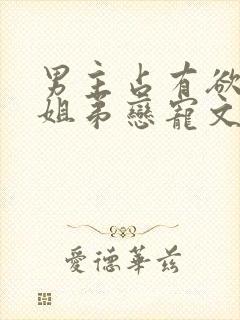 男主占有欲
姐弟戀寵文
愛德華茲